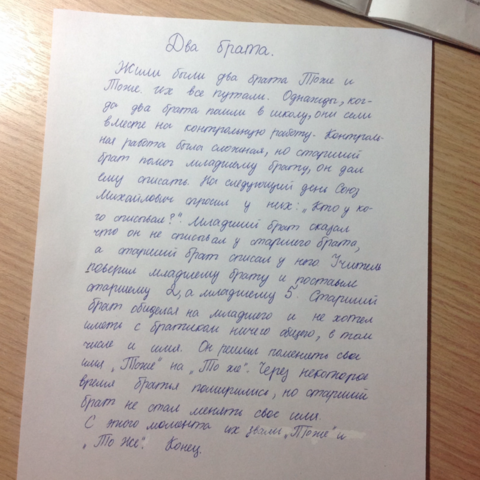 Два брата.
Жили были два брата Тоже и
Тоже. их все путали. Однажды, ког-
да два брата пошли в школу, они сели
вместе на контрольную работу. Контроль-
ная работа была сложная, но старший
брат помог младшему брату, он дал
ему списать. На следующий день Союз
Михайлович спросил у них: „Кто у ко-
го списывал?" Младший брат сказал
что он не списывал у старшего брата,
а старший брат списал у него Учитель
поверил младшему брату и поставил
старшему 2, а младшему 5. Старший
брат обиделся на младшего и не хотел
иметь с братиком ничего общего, в том
числе и имя. Он решил поменять свое
имя „Тоже" на „То же". Через некоторое
время братья помирились, но старший
брат не стал менять свое имя.
С этого момента их звали „Тоже" и
„То же". Конец.